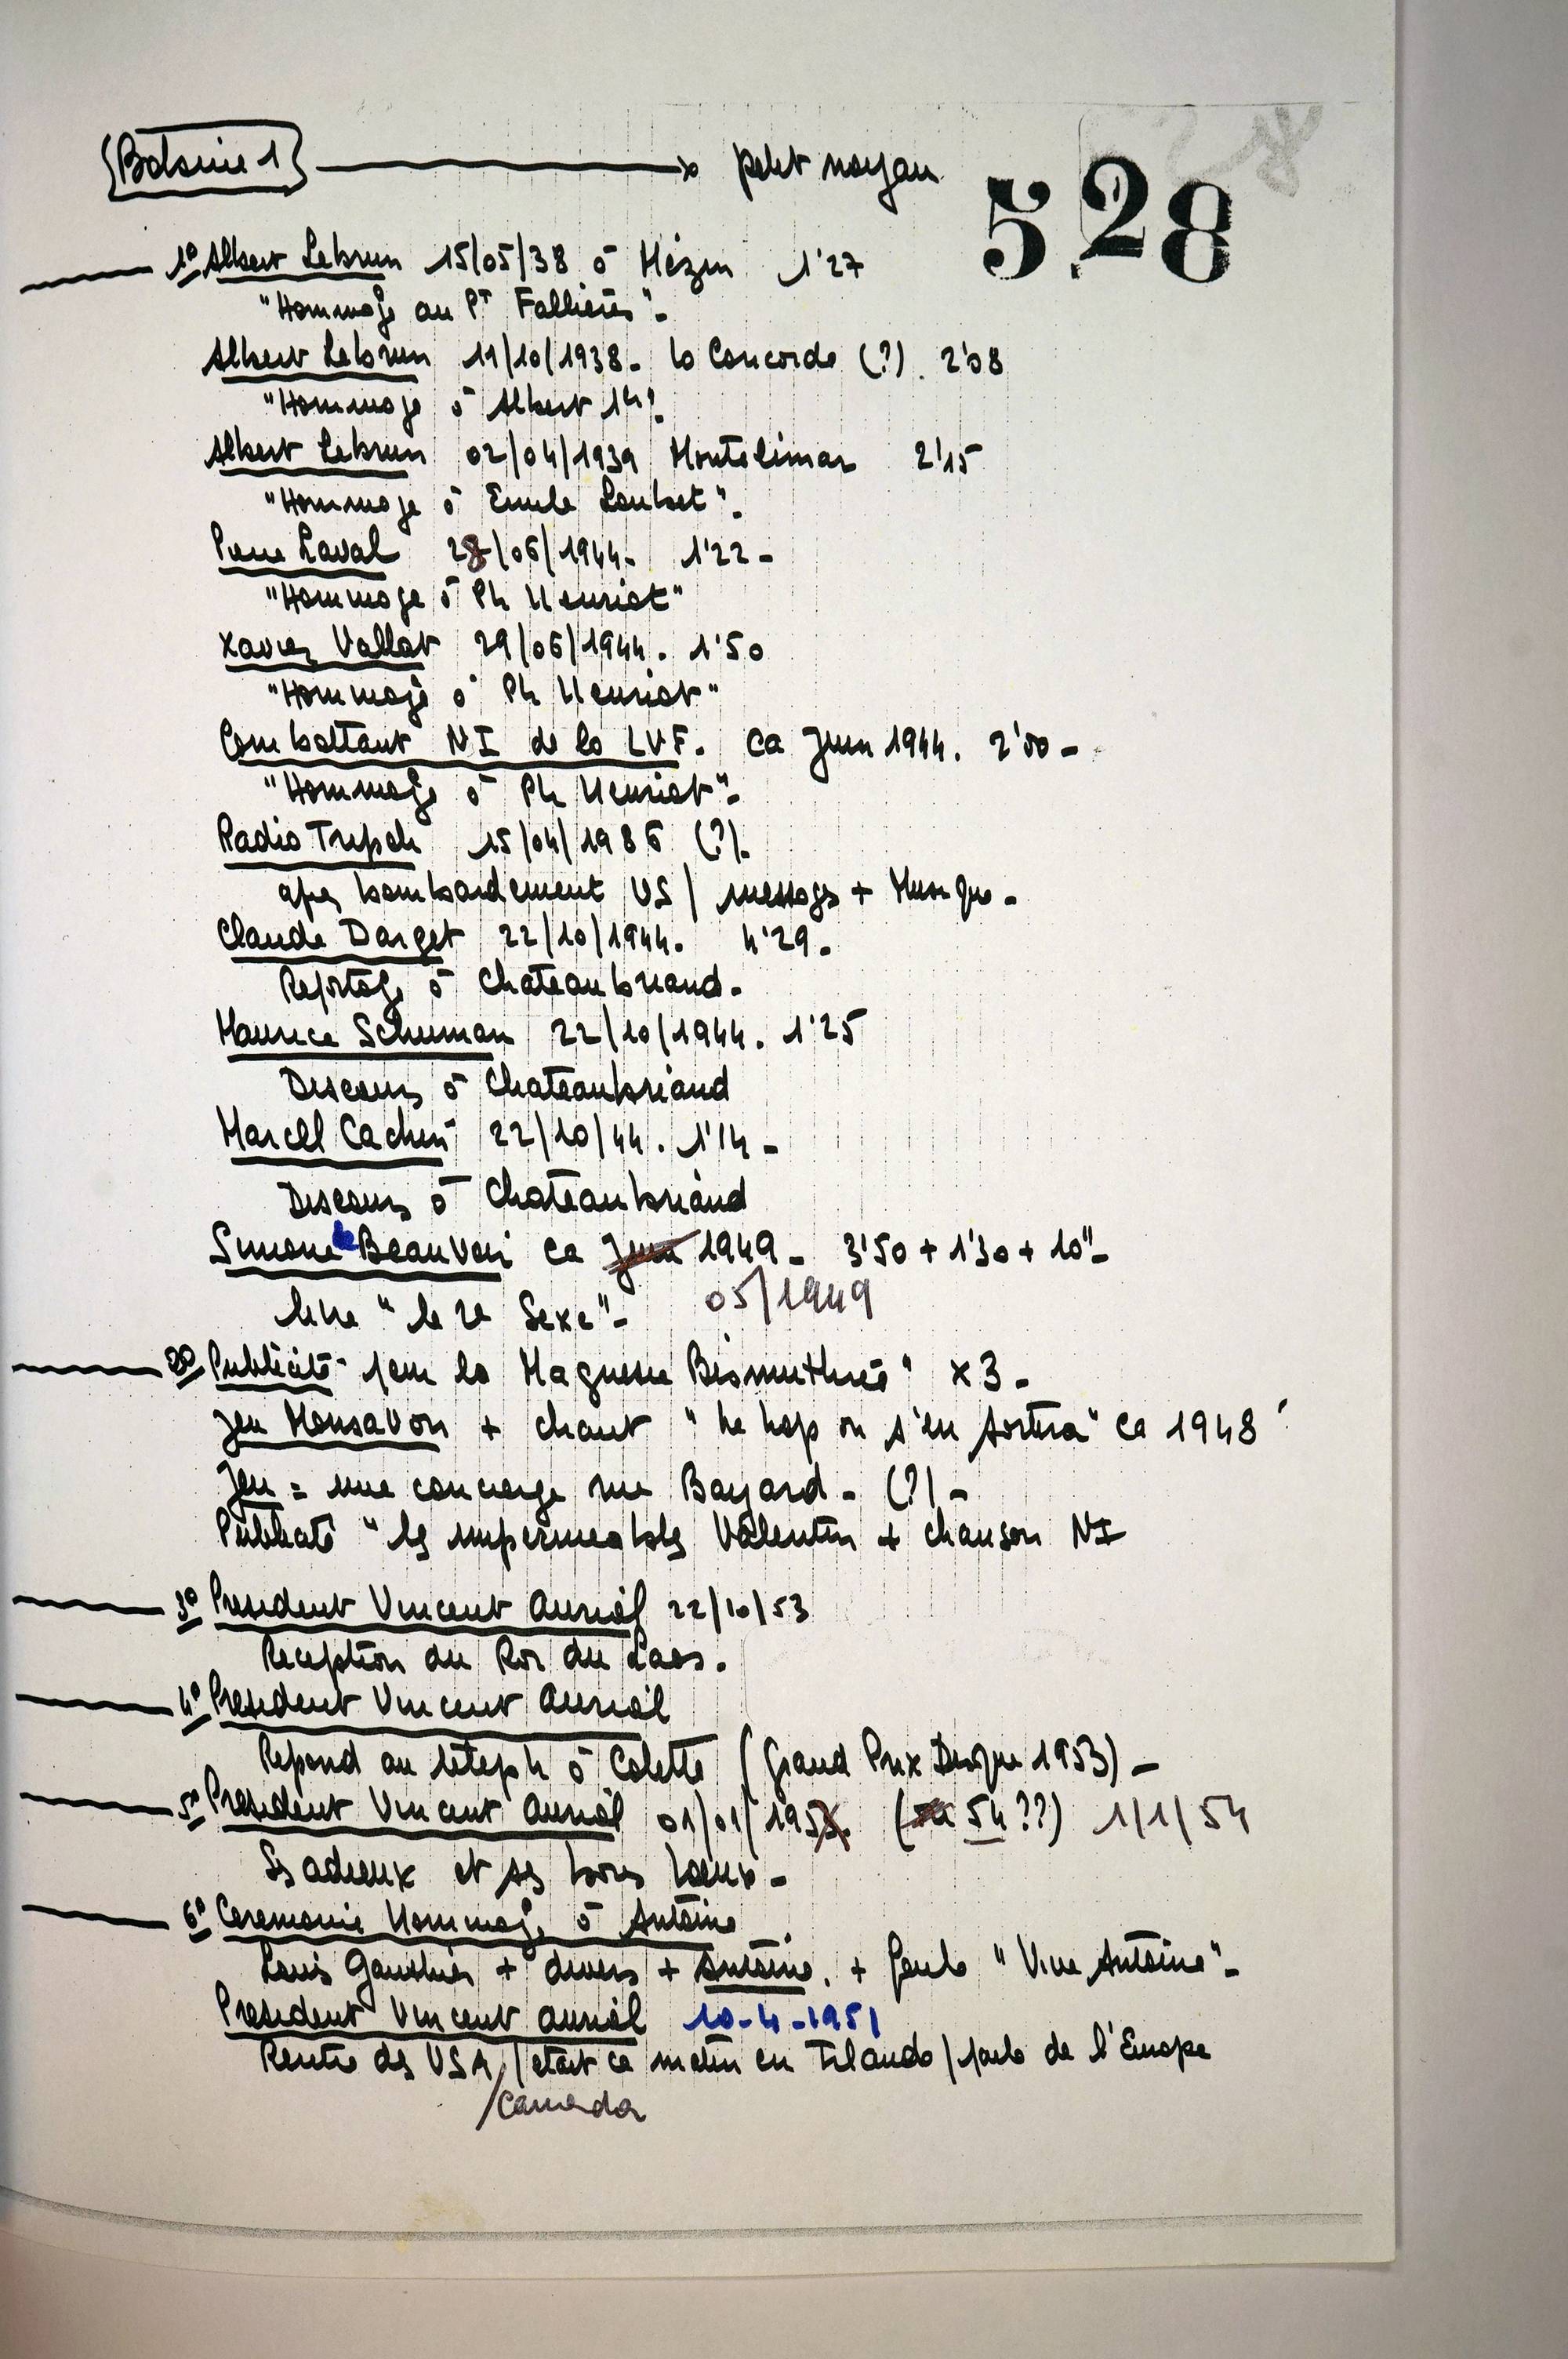 Bobine 1 → petit noyau
528
1° Albert Lebrun 15/05/38 à Mézin 1'27
"Hommage au Pt Fallières".
Albert Lebrun 11/10/1938. la Concorde (?). 2'08
"Hommage à Albert 1er".
Albert Lebrun 02/04/1939 Montelimar 2'15
"Hommage à Emile Loubet".
Pierre Laval 28/06/1944. 1'22 -
"Hommage à Ph Henriot"
Xavier Vallat 29/06/1944. 1'50
"Hommage à Ph Henriot"
Combattant NI de la LVF. ca Juin 1944. 2'00 -
"Hommage à Ph Henriot".
Radio Tripoli 15/04/1986 (?).
après bombardement US / messages + Musique -
Claude Darget 22/10/1944. 4'29 -
Reportage à Chateaubriand.
Maurice Schuman 22/10/1944. 1'25
Discours à Chateaubriand
Marcel Cachin 22/10/44. 1'14 -
Discours à Chateaubriand
Simone de Beauvoir ca Juin 1949 - 3'50 + 1'30 + 10" -
livre "le 2e Sexe" - 05/1949
2° Publicité pour la Magnesie Bismurée" x3 -
Jeu Monsavon + chant "he hop on s'en sortira" ca 1948
Jeu = une concierge rue Bayard - (?) -
Publicité "les impermeables Valentin + chanson NI
3° President Vincent Auriol 22/10/53
Reception du Roi du Laos.
4° President Vincent Auriol
Repond au téleph à Colette (Grand Prix Disque 1953) -
5° President Vincent Auriol 01/01/1953 (54 ??) 1/1/54
Ses adieux et ses bons voeux -
6° Ceremonie Hommage à Antoine
Louis Gauthier + divers + Antoine. + foule "Vive Antoine" -
President Vincent Auriol 10-4-1951
Rentre des USA / etait ce matin en Irlande / parle de l'Europe
/Canada